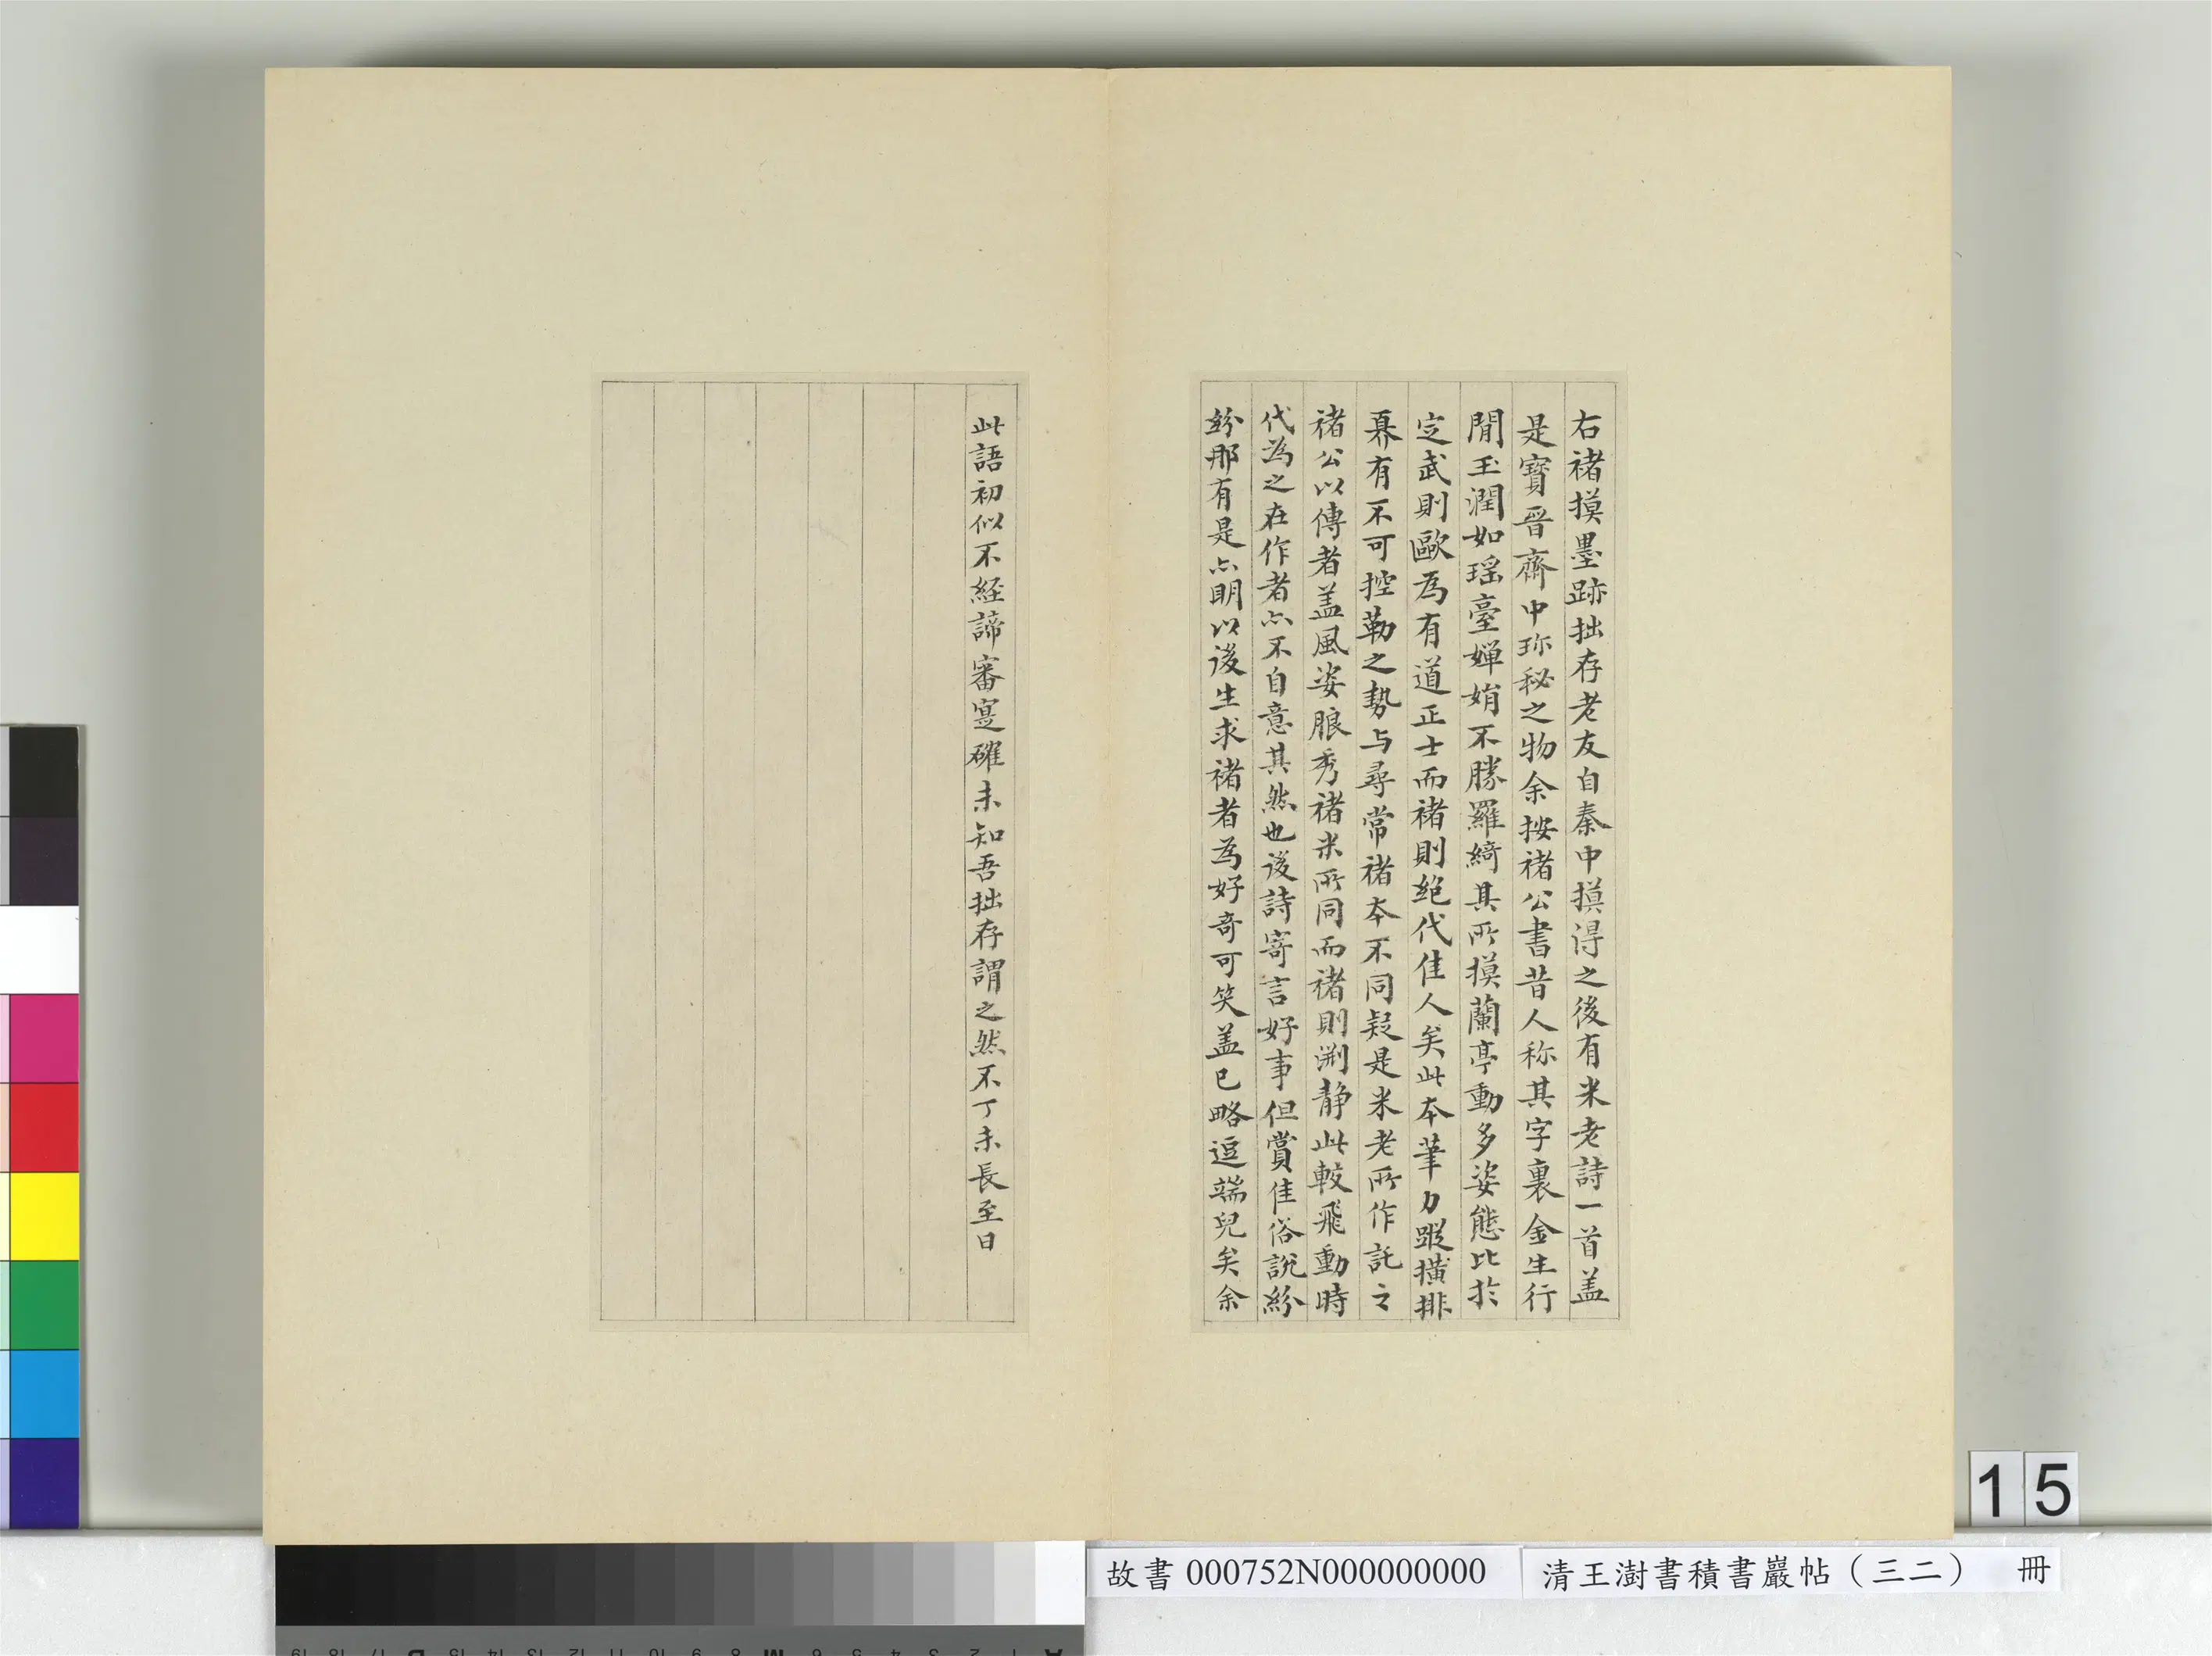 右褚摸墨跡拙存老友自秦中摸得之後有米老詩一首盖
是寳晉齋中珎秘之物余按褚公書昔人称其字裏金生行
間玉潤如瑶臺嬋娟不勝羅綺其所摸蘭亭動多姿態比於
定武則歐為有道正士而褚則絶代佳人矣此本筆力蹤橫排
奡有不可控勒之勢与尋常褚本不同疑是米老所作託之
褚公以傳者盖風姿朖秀褚米所同而褚則渊静此較飛動時
代為之在作者亦不自意其然也後詩寄言好事但賞佳俗說紛
紛那有是亦明以後生求褚者為好奇可笑盖已略逗端兒矣余
此語初似不經諦審寔確未知吾拙存謂之然不丁未長至日
15
故書 000752N000000000
清王澍書積書巖帖（三二） 冊